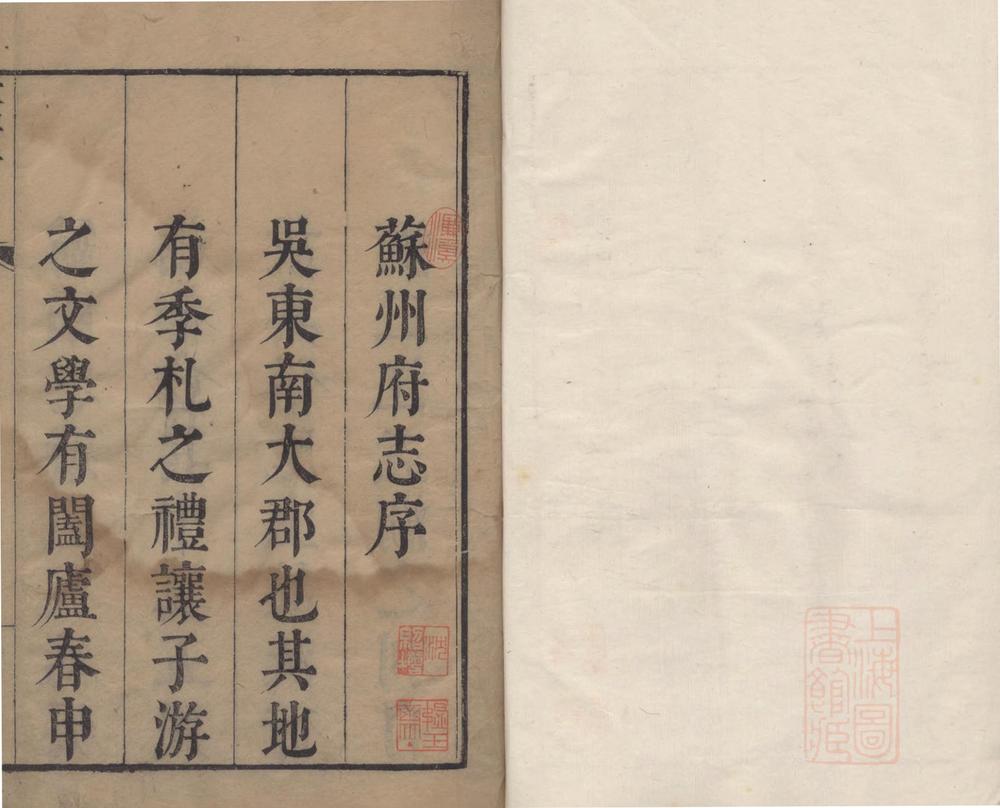 上海圖
書館藏
蘇州府志序
吳東南大郡也其地
有季札之禮讓子游
之文學有闔廬春申